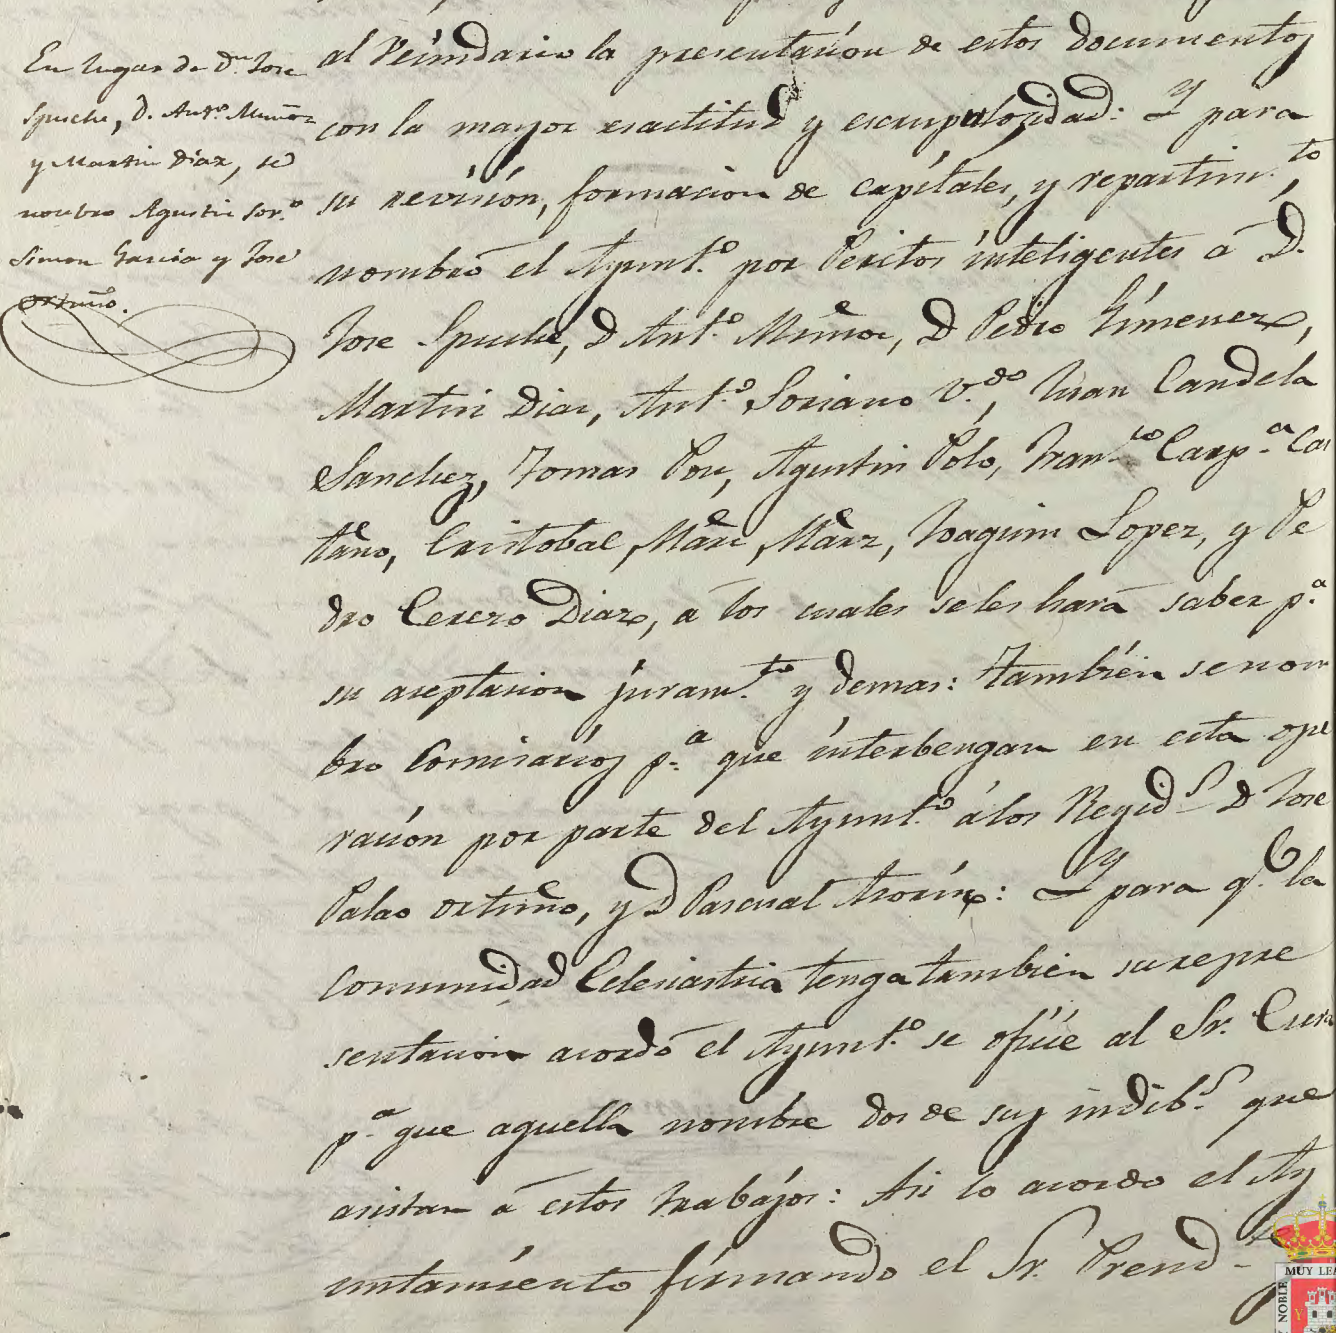 En lugar de Dn. Jose
Spuche, D. Anto. Muñoz
y Martin Diaz, se
nonbro Agustin Sor.o
Simon Garcia y Jose
ortuño.
al Vecindario la presentacion de estos documentos
con la mayor exactitud y escrupulosidad: Y para
su revision, formacion de capitales, y repartim.to
nombró el Ayunt.o por Peritos inteligentes á D.
Jose Spuche, D Ant.o Muñoz, D Pedro Gimenez,
Martin Diaz, Ant.o Soriano V.do, Juan Candela
Sanchez, Tomas Pou, Agustin Polo, Fran.co Carp.a Cas
taño, Cristobal, Joaquin Lopez, y Pe
dro Cerezo Diaz, á los cuales se les hará saber p.a
su aseptacion juram.to y demas: Tambien se nom
bro Comisarios p.a que interbengan en esta ope
racion por parte del Ayunt.o á los Regid.s D Jose
Palao ortuño, y D Pascual Azorin: Y para q.e la
Comunidad Eclesiastica tenga tambien su repre
sentacion acordó el Ayunt.o se oficie al Sr. Cura
p.a que aquella nombre dos de sus indib.s que
asistan á estos trabajos: Asi lo acordo el Ay
untamiento firmando el Sr. Presid.te
MUY LEA
NOBLE